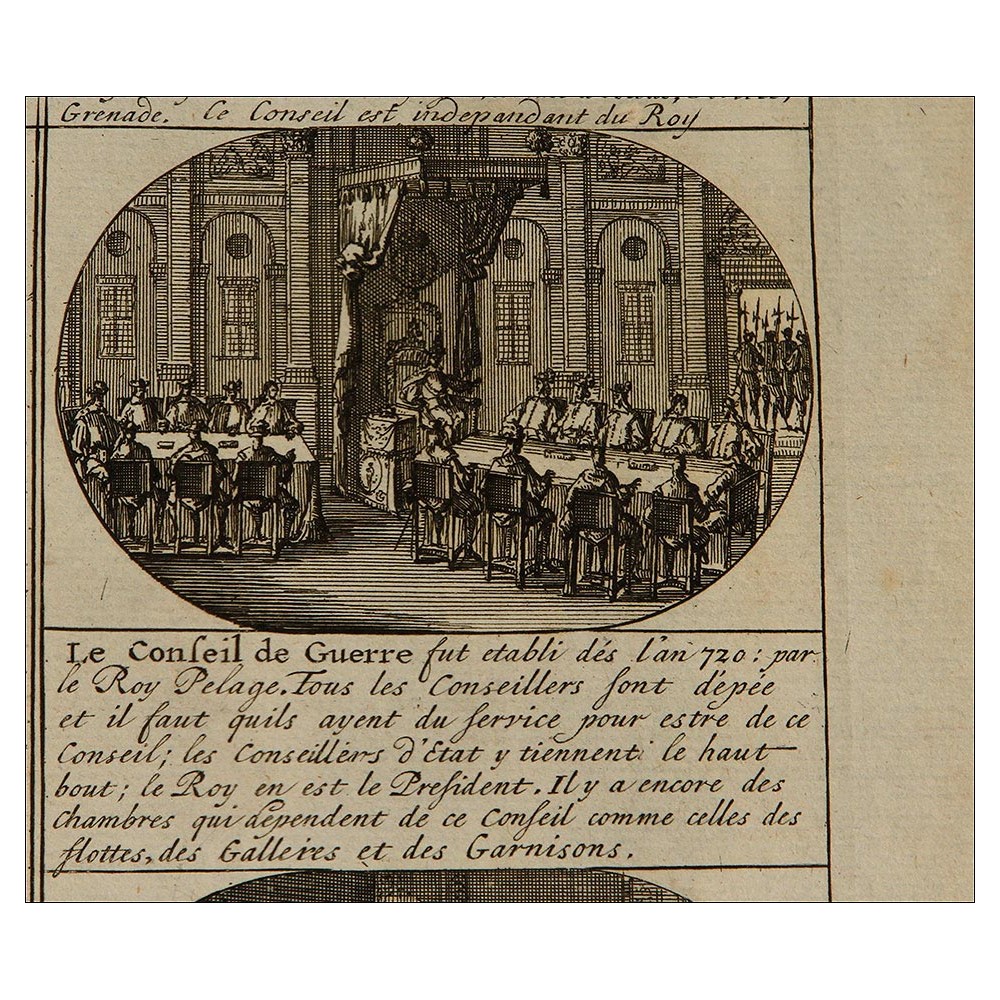 Grenade. Ce Conseil est indepandant du Roy
Le Conſeil de Guerre fut etabli dés l'an 720: par
le Roy Pelage. Tous les Conseillers ſont d'épée
et il faut quils ayent du ſervice pour estre de ce
Conseil; les Conseillérs d'Etat y tiennent le haut
bout; le Roy en est le Preſident. Il y a encore des
Chambres qui dependent de ce Conſeil comme celles des
flottes, des Galleres et des Garnisons.